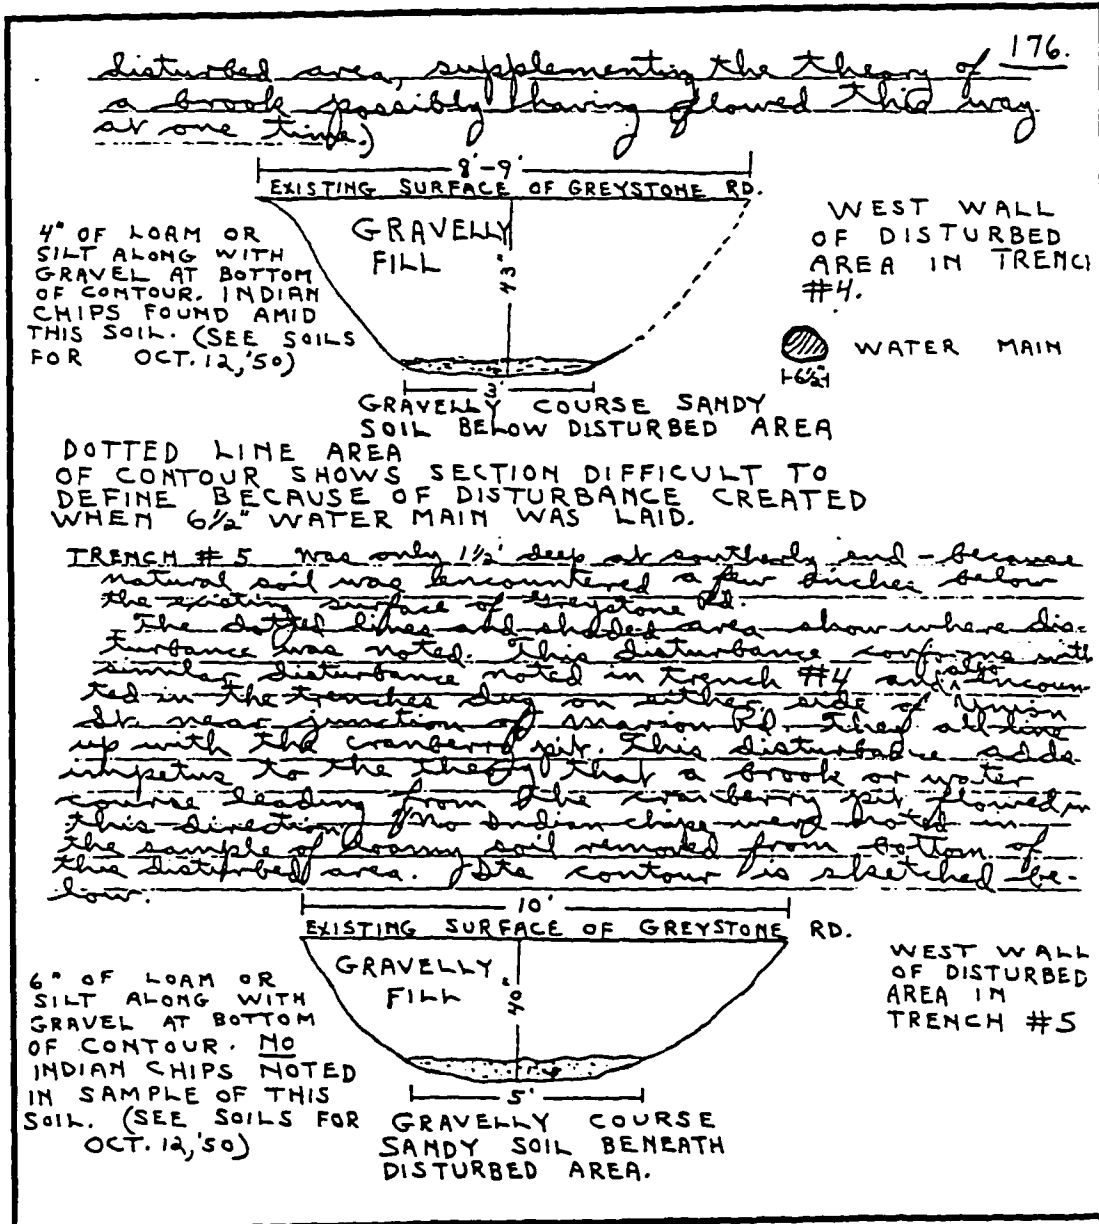 176.
disturbed area, supplementing the theory of
a brook possibly having flowed this way
at one time.)
8'-9'
EXISTING SURFACE OF GREYSTONE RD.
GRAVELLY
FILL
43"
4" OF LOAM OR
SILT ALONG WITH
GRAVEL AT BOTTOM
OF CONTOUR. INDIAN
CHIPS FOUND AMID
THIS SOIL. (SEE SOILS
FOR OCT. 12, '50)
WEST WALL
OF DISTURBED
AREA IN TRENCH
#4.
WATER MAIN
6½"
3'
GRAVELLY COURSE SANDY
SOIL BELOW DISTURBED AREA
DOTTED LINE AREA
OF CONTOUR SHOWS SECTION DIFFICULT TO
DEFINE BECAUSE OF DISTURBANCE CREATED
WHEN 6½" WATER MAIN WAS LAID.
TRENCH #5 was only 1½' deep at southerly end - because
natural soil was encountered a few inches below
the existing surface of Greystone Rd.
The dotted lines and shaded area show where dis-
turbance was noted. This disturbance conforms with
similar disturbance noted in trench #4 and also encoun
ted in the trenches dug on either side of Union
St. near junction of Marion Rd. They all line
up with the cranberry pit. This disturbance adds
impetus to the theory that a brook or water
course leading from the cranberry pit flowed in
this direction. No Indian chips were noted in
the sample of loamy soil removed from bottom of
this disturbed area. Its contour is sketched be-
low.
10'
EXISTING SURFACE OF GREYSTONE RD.
GRAVELLY
FILL
40"
6" OF LOAM OR
SILT ALONG WITH
GRAVEL AT BOTTOM
OF CONTOUR. NO
INDIAN CHIPS NOTED
IN SAMPLE OF THIS
SOIL. (SEE SOILS FOR
OCT. 12, '50)
WEST WALL
OF DISTURBED
AREA IN
TRENCH #5
5'
GRAVELLY COURSE
SANDY SOIL BENEATH
DISTURBED AREA.